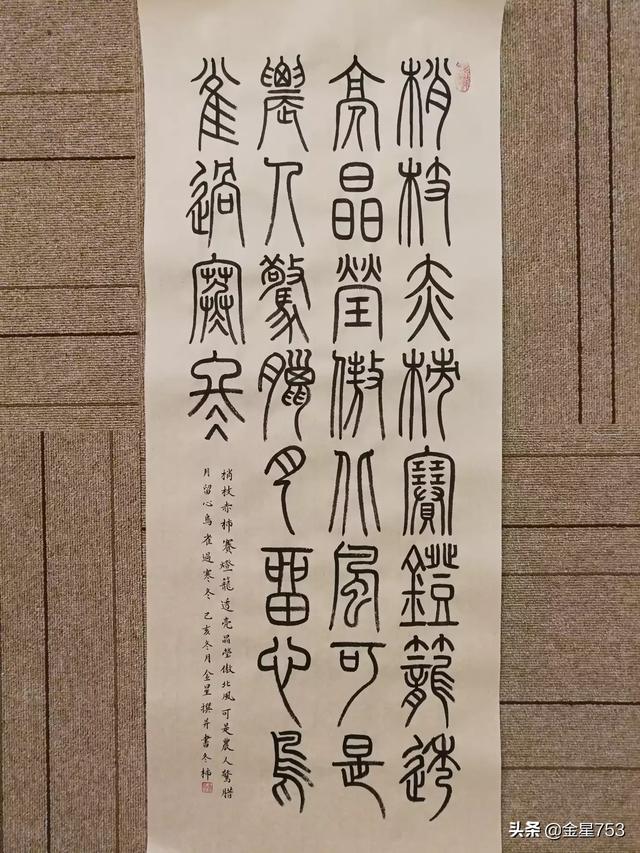 梢枝赤柿賽鐙籠透
亮晶瑩傲北風可是
農人驚臘月留心鳥
雀過寒冬
梢枝赤柿賽燈籠透亮晶瑩傲北風可是農人驚腊
月留心鳥雀過寒冬 己亥冬月金星撰并書冬柿
头条 @金星753